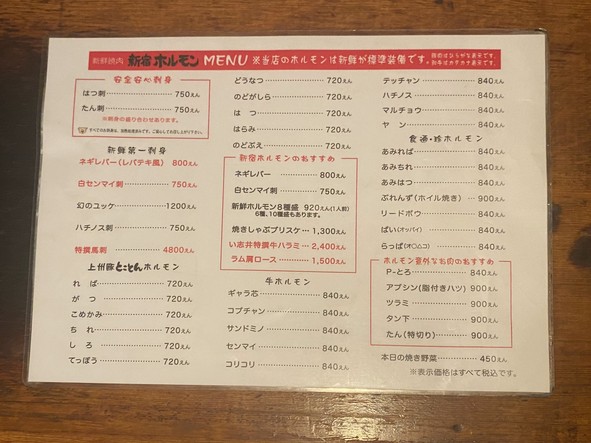 新鮮焼肉 新宿ホルモン MENU ※当店のホルモンは新鮮が標準装備です。
安全安心刺身
はつ刺 750えん
たん刺 750えん
※刺身の盛り合わせあります。
新鮮第一刺身
ネギレバー(レバテキ風) 800えん
白センマイ刺 750えん
幻のユッケ 1200えん
ハチノス刺 750えん
特撰馬刺 4800えん
上州豚とことんホルモン
れば 720えん
がつ 720えん
こめかみ 720えん
ちれ 720えん
しろ 720えん
てっぽう 720えん
どうなつ 720えん
のどがしら 720えん
はつ 720えん
はらみ 720えん
のどぶえ 720えん
新宿ホルモンのおすすめ
ネギレバー 800えん
白センマイ刺 750えん
新鮮ホルモン8種盛 920えん(1人前)
6種、10種盛もあります。
焼きしゃぶブリスケ 1,300えん
い志井特撰牛ハラミ 2,400えん
ラム肩ロース 1,500えん
牛ホルモン
ギャラ芯 840えん
コブチャン 840えん
サンドミノ 840えん
センマイ 840えん
コリコリ 840えん
テッチャン 840えん
ハチノス 840えん
マルチョウ 840えん
ヤン 840えん
食通・珍ホルモン
あみれば 840えん
あみちれ 840えん
あみはつ 840えん
ぶれんず(ホイル焼き) 900えん
リードボウ 840えん
ぱい(オッパイ) 840えん
らっぱ(オ○△コ) 840えん
ホルモン意外なお肉のおすすめ
P-とろ 840えん
アブシン(脂付きハツ) 900えん
ツラミ 900えん
タン下 900えん
たん(特切り) 900えん
本日の焼き野菜 450えん
※表示価格はすべて税込です。